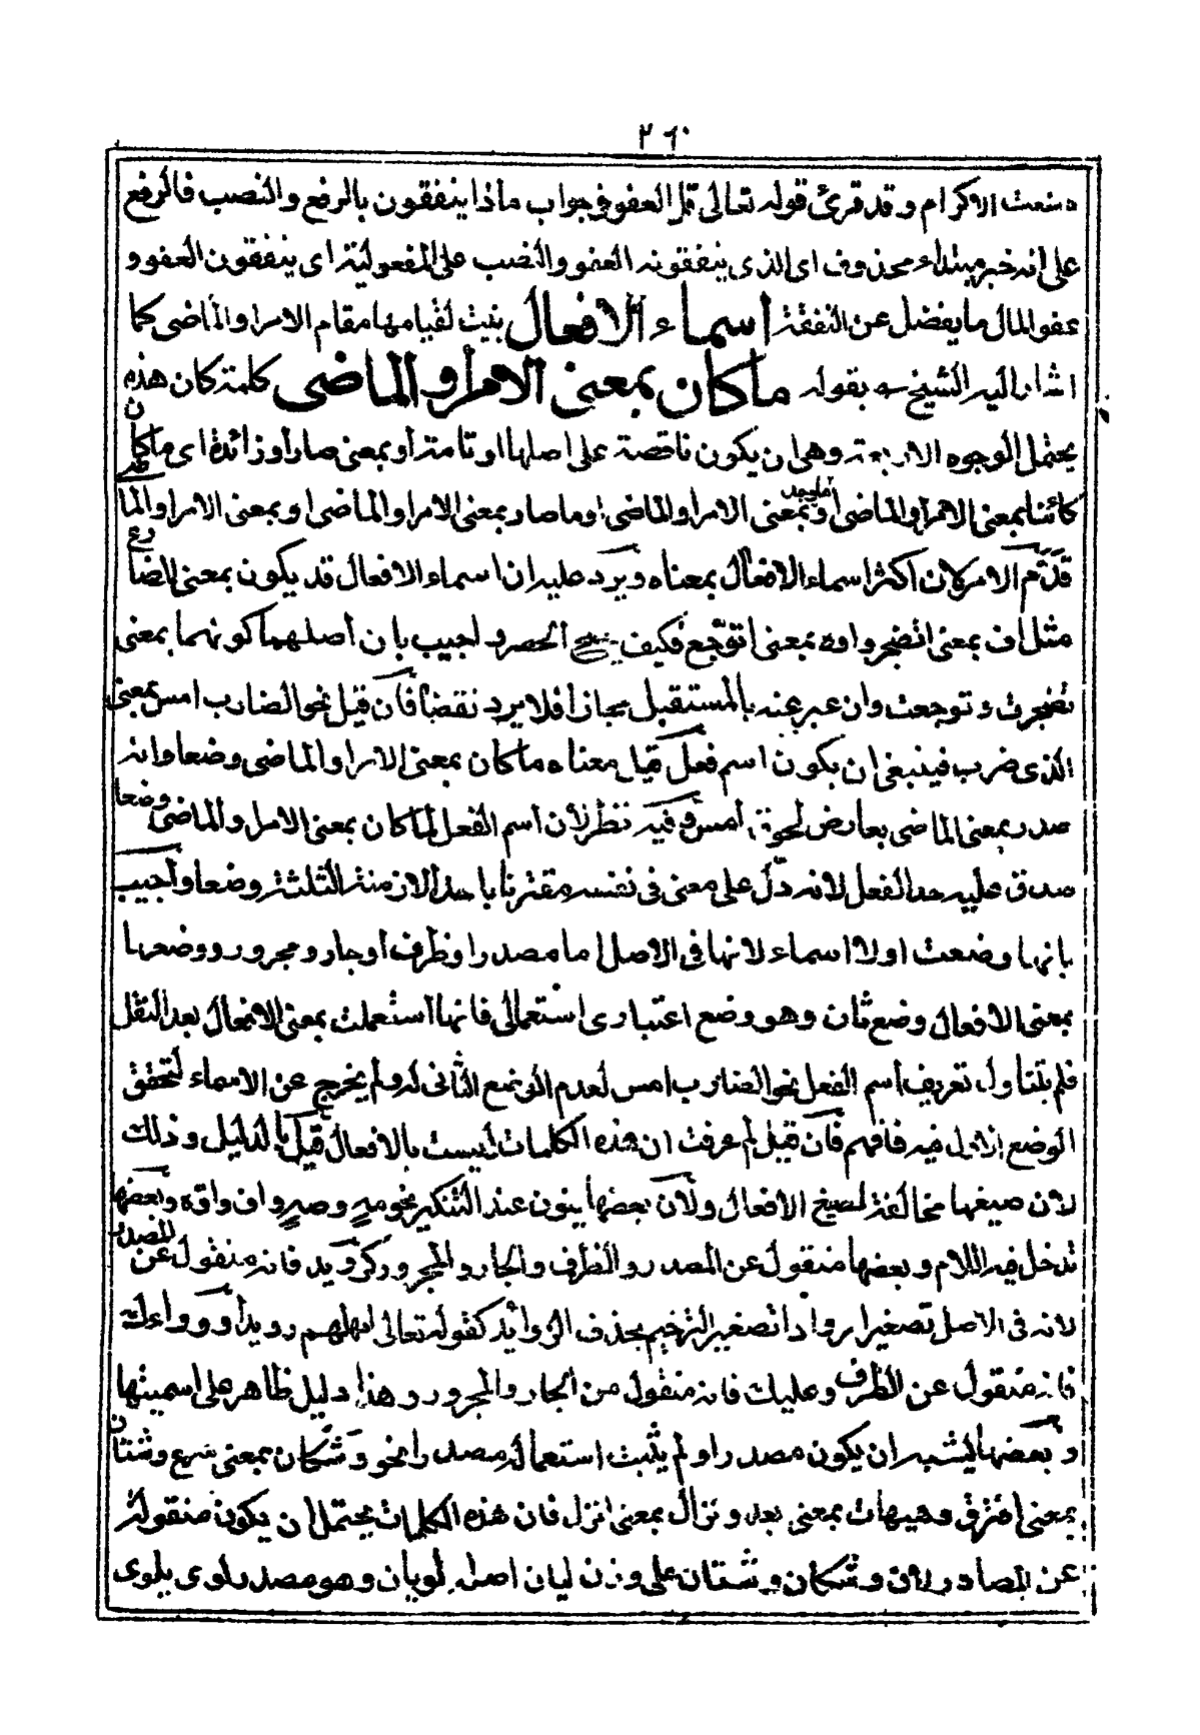 ٢٦٠
صنعت الاكرام وقد قرئ قوله تعالى قل العفو فى جواب ماذا ينفقون بالرفع والنصب فالرفع
على انه خبر مبتداء محذوف اى الذى ينفقونه العفو والنصب على المفعولية اى ينفقون العفو و
عفو المال ما يفضل عن النفقة اسماء الافعال بنيت لقيامها مقام الامر او الماضى كما
اشار اليه الشيخ بقوله ماكان بمعنى الامر او الماضى كلمة كان هذه
يحتمل الوجوه الاربعة وهى ان يكون ناقصة على اصلها او تامة أو بمعنى صار أو زائدة اى ماكان
كائنا بمعنى الامر او الماضى او ما وجد بمعنى الامر او الماضى او ما صار بمعنى الامر او الماضى او بمعنى الامر او الماضى
قدّم الامر لان اكثر اسماء الافعال بمعناه ويرد عليه ان اسماء الافعال قد يكون بمعنى المضارع
مثل اف بمعنى اتضجر واوه بمعنى اتوجّع فكيف يصح الحصر و اجيب بان أصلهما كونهما بمعنى
تضجرت و توجعت وان عبر عنه بالمستقبل مجازا فلا يرد نقضا فان قيل نحو الضارب امس بمعنى
الذى ضرب فينبغى ان يكون اسم فعل قيل معناه ماكان بمعنى الامر او الماضى وضعا وانه
صدر بمعنى الماضى بعارض لحوق امس وفيه نظر لأن اسم الفعل لما كان بمعنى الامر او الماضى وضعا
صدق عليه حد الفعل لانه دلّ على معنى فى نفسه مقترنا باحد الازمنة الثلثة وضعا وأجيب
بانها وضعت اولا اسماء لانها فى الاصل اما مصدر او ظرف أو جار و مجرور و وضعها
بمعنى الافعال وضع ثان وهو وضع اعتبارى استعمالى فانها استعملت بمعنى الافعال بعد النقل
فلم يتناول تعريف اسم الفعل نحو الضارب امس لعدم الوضع الثانى له ولم يخرج عن الاسماء لتحقق
الوضع الاول فيه فافهم فان قيل لم عرفت ان هذه الكلمات ليست بالافعال قيل بالدليل وذلك
لان صيغها مخالفة لصيغ الافعال ولان بعضها ينون عند التنكير نحو مهٍ وصهٍ واف واوّه وبعضها
تدخل فيه اللام وبعضها منقول عن المصدر و الظرف والجار والمجرور كرويد فانه منقول عن المصدر
لانه فى الاصل تصغير ارواد اتصغير الترخيم بحذف الزوائد كقوله تعالى امهلهم رويدا و وراءك
فانه منقول عن الظرف وعليك فانه منقول من الجار والمجرور وهذا دليل ظاهر على اسميتها
وبعضها ليشبه ان يكون مصدرا ولم يثبت استعماله مصدرا نحو وشكان بمعنى سرع وشتان
بمعنى افترق وهيهات بمعنى بعد ونزال بمعنى انزل فان هذه الكلمات يحتمل ان يكون منقولة
عن المصادر لان وشكان وشتان على وزن ليان اصله لويان وهو مصدر لوى يلوى